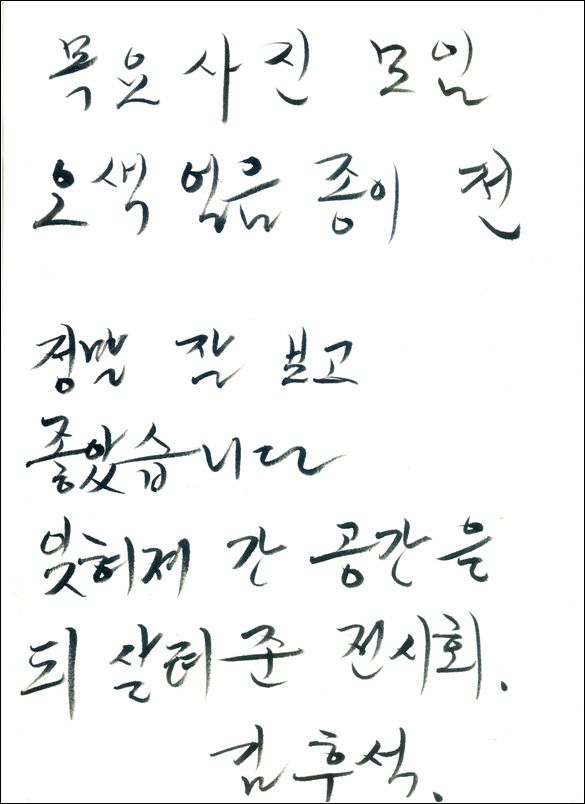 목요 사진 모임
오색 얼음 종이 전
정말 잘 보고
좋았습니다
잊혀져 간 공간을
되 살려 준 전시회.
김후석.